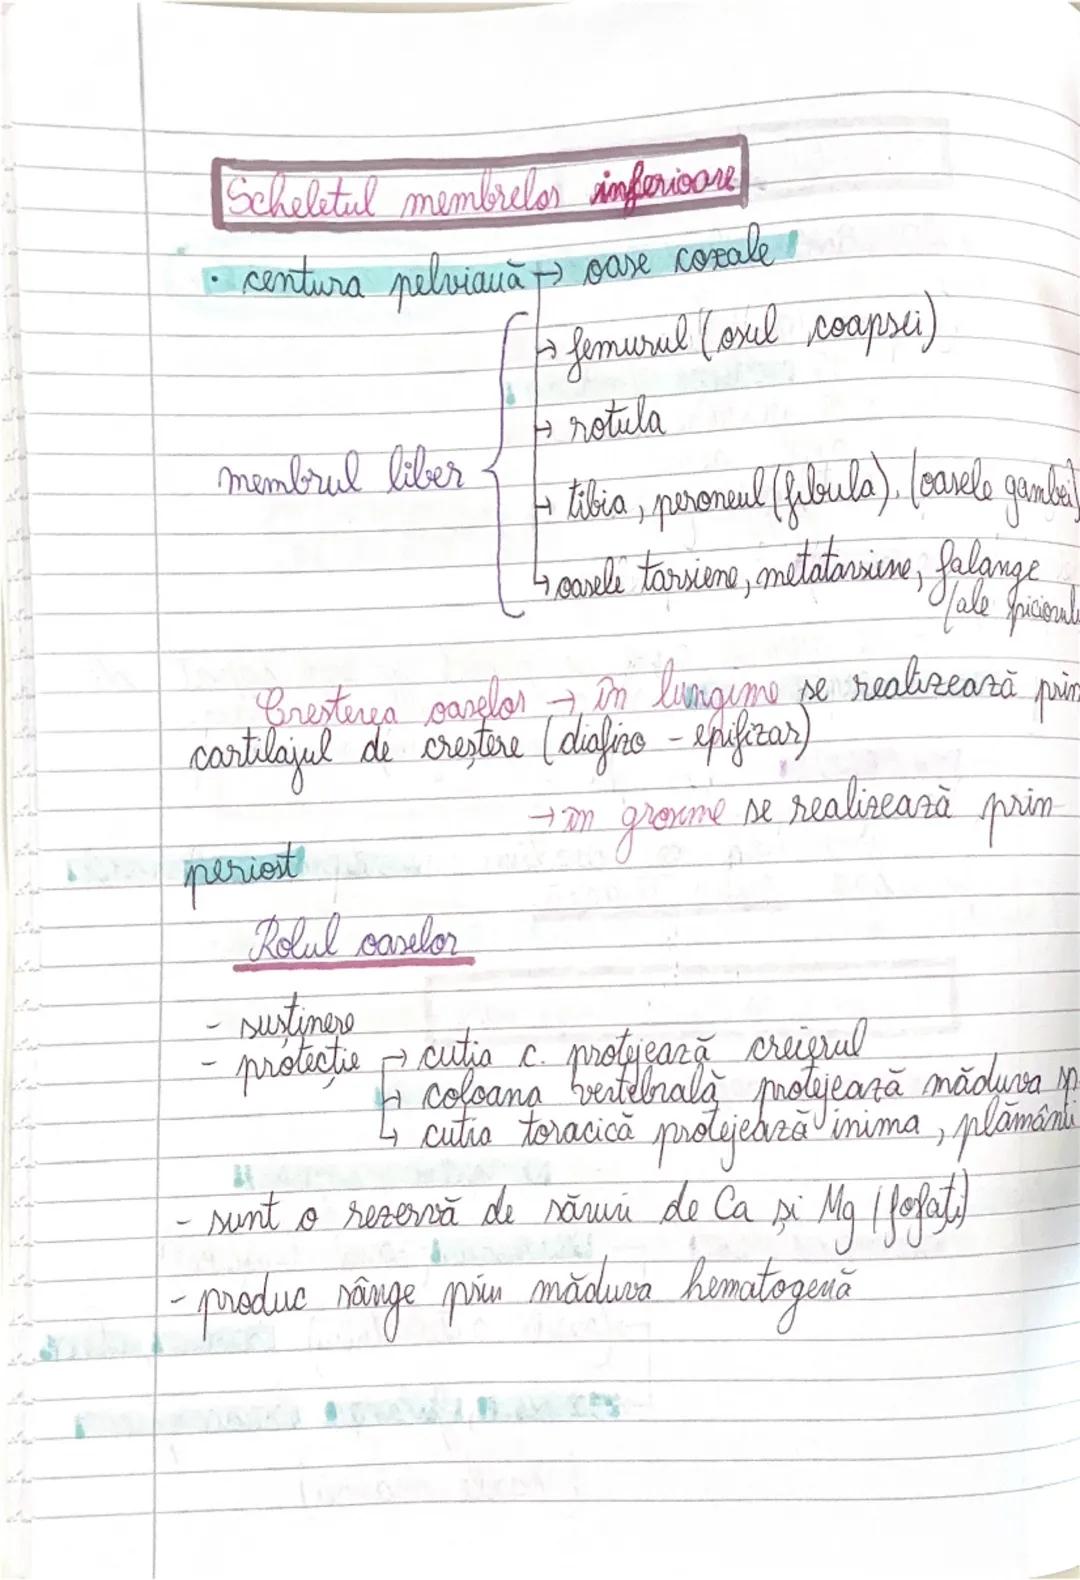 Scheletul membrelor inferioare
• centura pelviană → oase coxale
→ femurul (osul coapsei)
→ rotula
membrul liber
→ tibia, peroneul (fibula). (oasele gambei)
→ oasele tarsiene, metatarsiene, falange
(ale piciorul
Creșterea oaselor → în lungime se realizează prin
cartilajul de creștere (diafizo - epifizar)
→ în grosime se realizează prin
periost
Rolul oaselor
- susținere
- protecție → cutia c. protejează creierul
→ coloana vertebrală protejează măduva sp
→ cutia toracică protejează inima, plămâni
- sunt o rezervă de săruri de Ca și Mg (fosfați)
- produc sânge prin măduva hematogenă